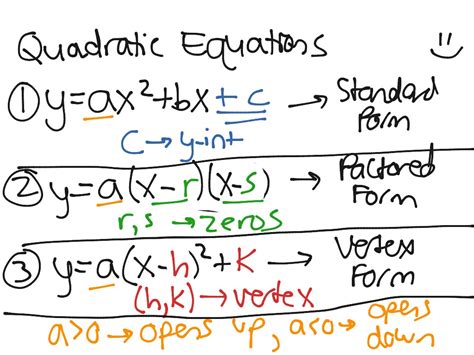 Quadratic Equations
① y=ax²+bx+c → Standard Form
c → y-int
② y=a(x-r)(x-s) → Factored Form
r,s → zeros
③ y=a(x-h)²+k → Vertex Form
(h,k) → vertex
a>0 → opens up, a<0 → opens down